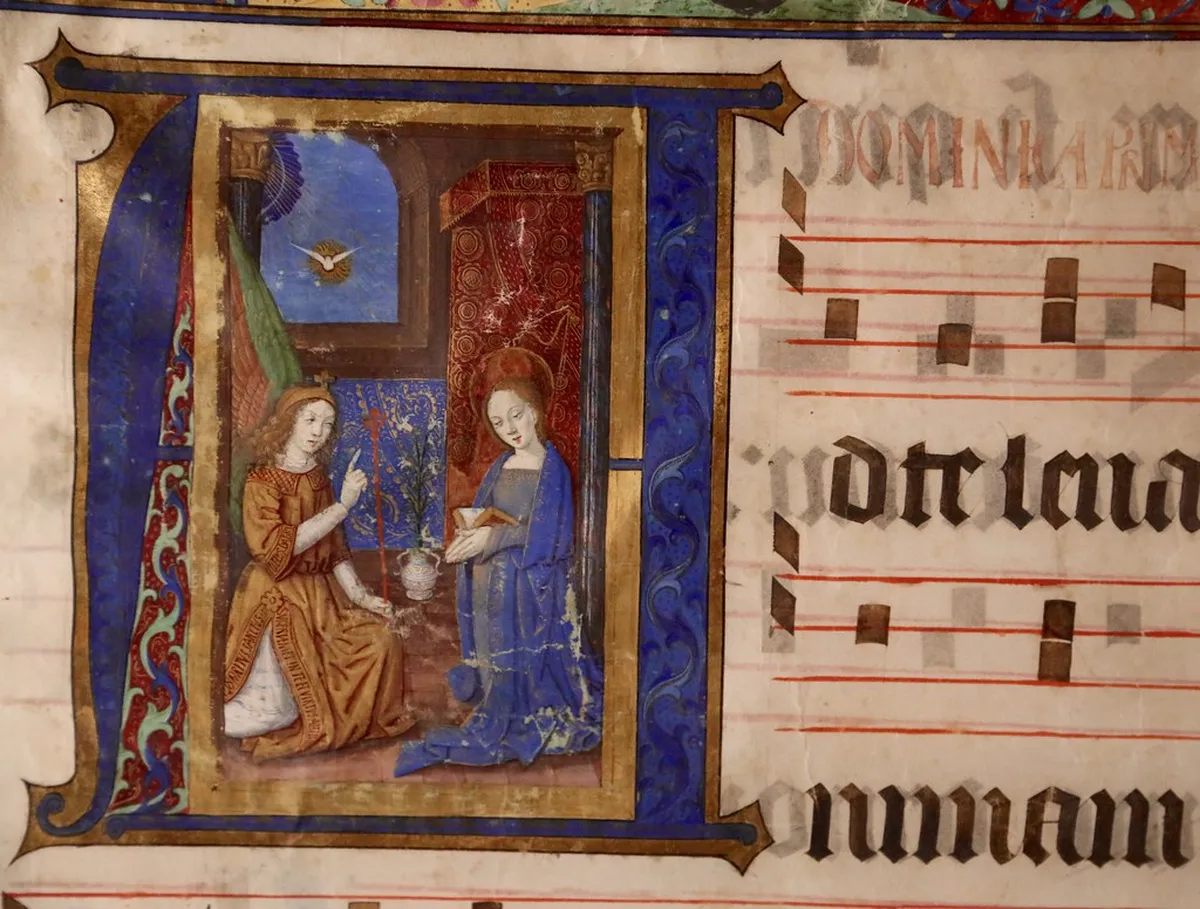 DOMINICA PRIM
Ad te leua
nimam